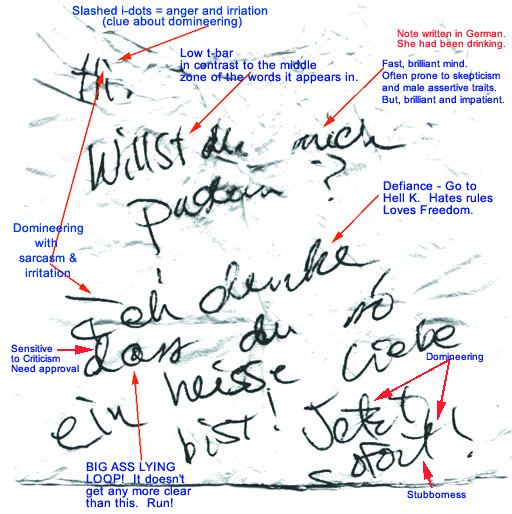 Slashed i-dots = anger and irriation
(clue about domineering)
Note written in German.
She had been drinking.
Low t-bar
in contrast to the middle
zone of the words it appears in.
Fast, brilliant mind.
Often prone to skepticism
and male assertive traits.
But, brilliant and impatient.
Hi.
Willst du mich
?
Defiance - Go to
Hell K. Hates rules
Loves Freedom.
Domineering
with
sarcasm &
irritation
Ich denke
Sensitive
to Criticism
Need approval
dass du so
ein heisse Liebe
bist! Jetzt
sofort!
Domineering
BIG ASS LYING
LOOP! It doesn't
get any more clear
than this. Run!
Stubborness